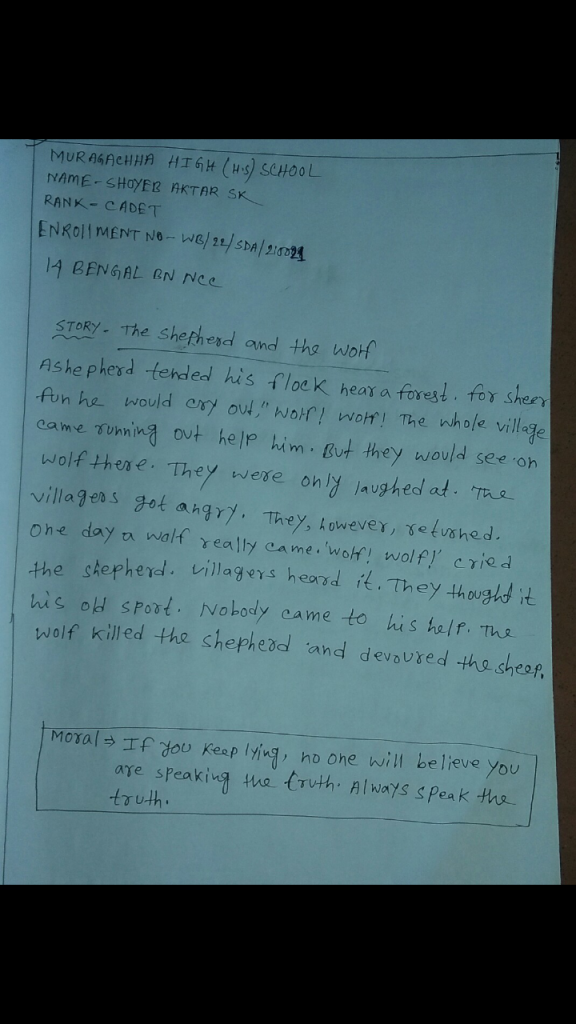 MURAGACHHA HIGH (H.S) SCHOOL
NAME - SHOYEB AKTAR SK
RANK - CADET
ENROllMENT NO - WB/22/SDA/
14 BENGAL BN NCC
STORY - The Shepherd and the Wolf
A shepherd tended his flock near a forest. for sheer
fun he would cry out," Wolf! Wolf! The whole village
came running out help him. But they would see on
wolf there. They were only laughed at. The
villagers got angry. They, however, returned.
One day a wolf really came. 'Wolf! Wolf!' cried
the shepherd. villagers heard it. They thought it
his old sport. Nobody came to his help. The
wolf killed the shepherd and devoured the sheep.
Moral ⇒ If you keep lying, no one will believe you
are speaking the truth. Always speak the
truth.